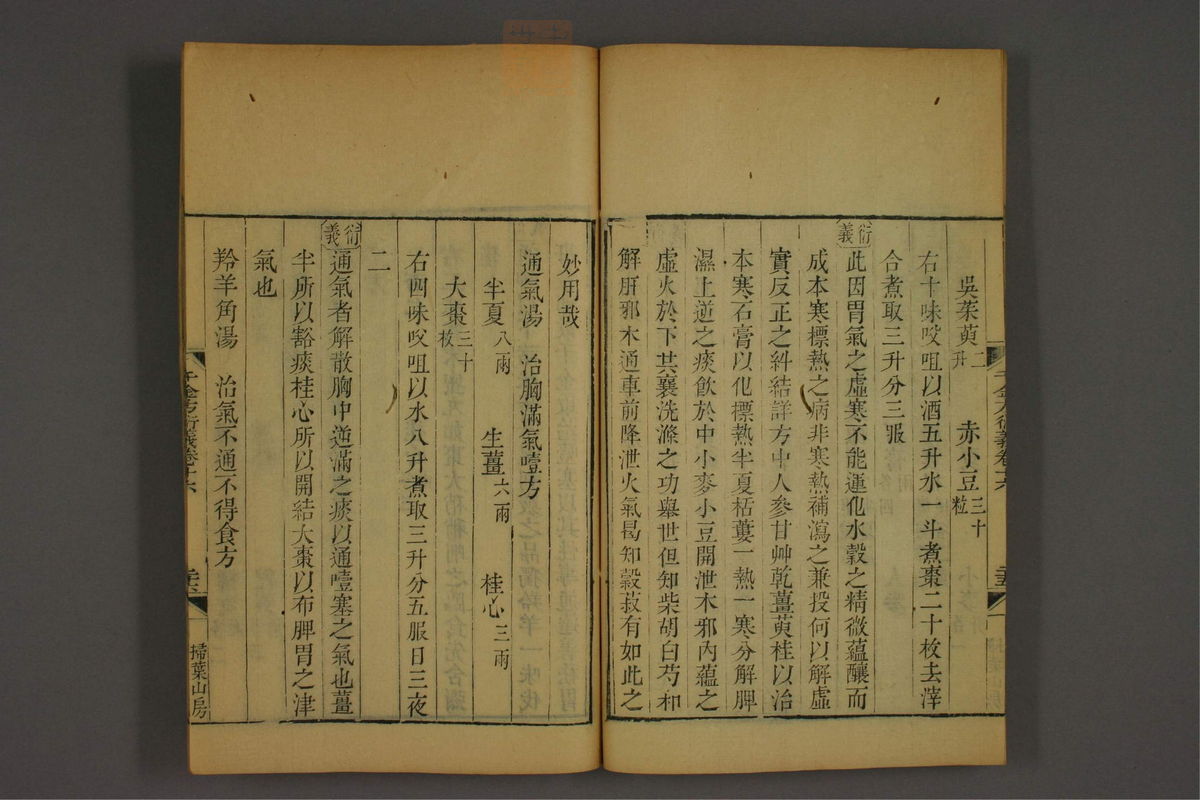 吳茱萸二升　赤小豆三十粒
右十味㕮咀以酒五升水一斗煮棗二十枚去滓
合煮取三升分三服
衍義此因胃氣之虛寒不能運化水穀之精微蘊釀而
成本寒標熱之病非寒熱補瀉之兼投何以解虛
實反正之糾結詳方中人參甘艸乾薑萸桂以治
本寒石膏以化標熱半夏栝蔞一熱一寒分解脾
濕上逆之痰飲於中小麥小豆開泄木邪內蘊之
虛火於下共襄洗滌之功舉世但知柴胡白芍和
解肝邪木通車前降泄火氣曷知穀菽有如此之
妙用哉
通氣湯　治胸滿氣噎方
半夏八兩　生薑六兩　桂心三兩
大棗三十枚
右四味㕮咀以水八升煮取三升分五服日三夜
二
衍義通氣者解散胸中逆滿之痰以通噎塞之氣也薑
半所以豁痰桂心所以開結大棗以布脾胃之津
氣也
羚羊角湯　治氣不通不得食方
千金方衍義卷十六
掃葉山房